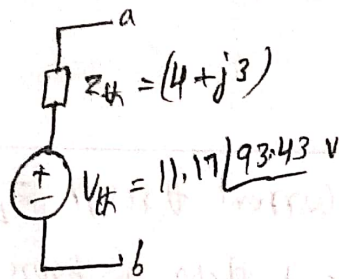 a
Zth = (4 + j3)
+
-
Vth = 11.17∠93.43 V
b